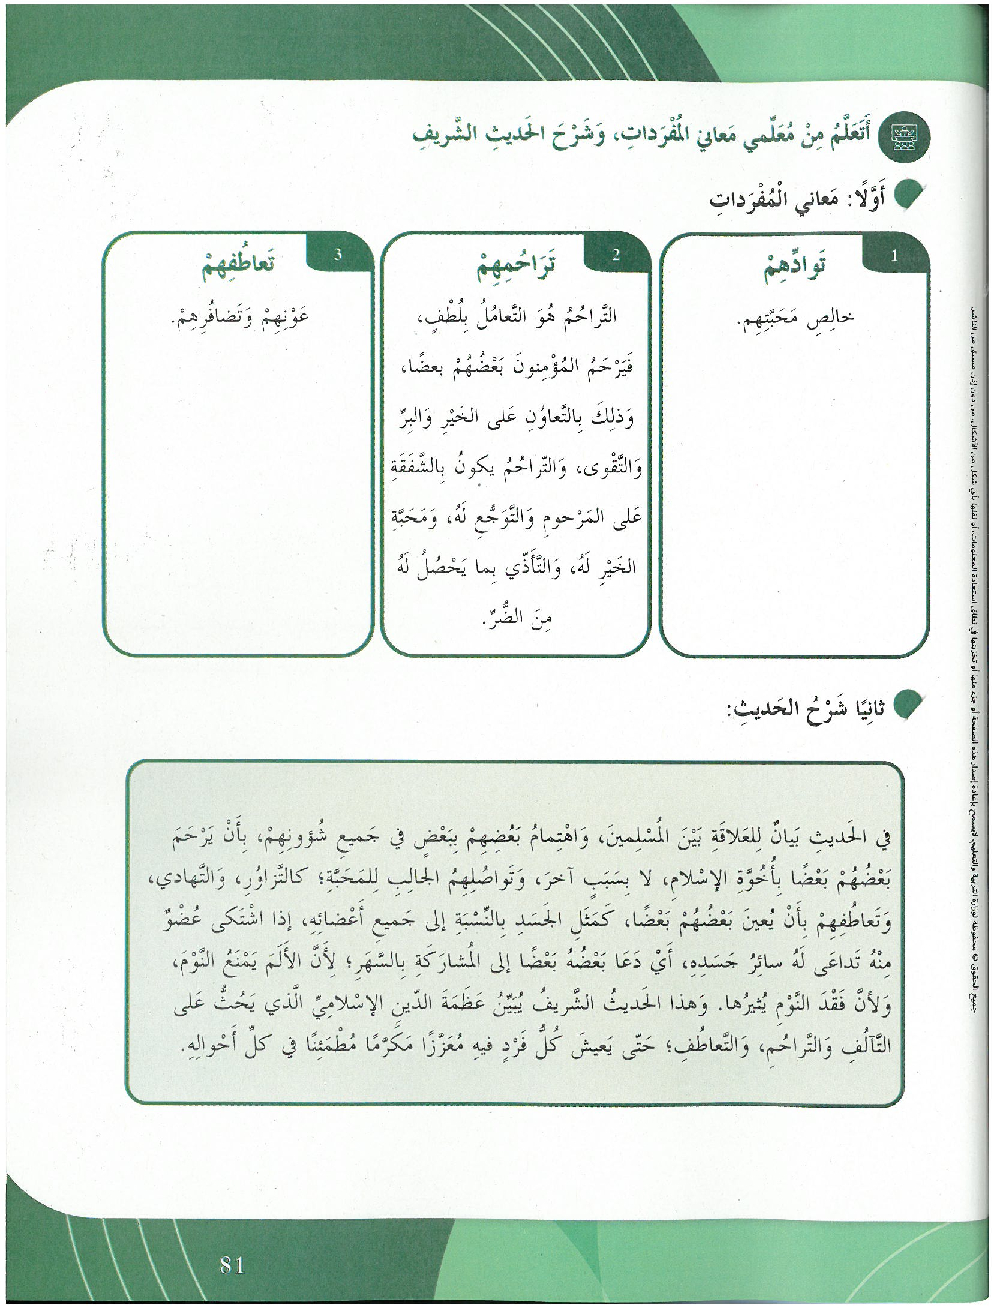 أَتَعَلَّمُ مِنْ مُعَلِّمي مَعانِيَ المُفْرَداتِ، وَشَرْحَ الحَديثِ الشَّريفِ
أَوَّلًا: مَعاني الْمُفْرَداتِ
1
تَوادِّهِمْ
خالِصِ مَحَبَّتِهِم.
2
تَرَاحُمِهِمْ
التَّراحُمُ هُوَ التَّعامُلُ بِلُطْفٍ،
فَيَرْحَمُ المُؤْمِنونَ بَعْضُهُمْ بعضًا،
وَذلِكَ بِالتَّعاوُنِ عَلى الخَيْرِ وَالبِرِّ
وَالتَّقْوى، وَالتَّراحُمُ يكونُ بِالشَّفَقَةِ
عَلى المَرْحومِ وَالتَّوَجُّعِ لَهُ، وَمَحَبَّةِ
الخَيْرِ لَهُ، وَالتَّأَذّي بِما يَحْصُلُ لَهُ
مِنَ الضُّرِّ.
3
تَعاطُفِهِمْ
عَوْنِهِمْ وَتَضافُرِهِمْ.
ثانِيًا شَرْحُ الحَديثِ:
في الحَديثِ بَيانٌ لِلعَلاقَةِ بَيْنَ المُسْلِمينَ، وَاهْتِمامُ بَعْضِهِمْ بِبَعْضٍ في جَميعِ شُؤونِهِمْ، بِأَنْ يَرْحَمَ
بَعْضُهُمْ بَعْضًا بِأُخُوَّةِ الإِسْلامِ، لا بِسَبَبٍ آخرَ، وَتَواصُلِهِمُ الجالِبِ لِلمَحَبَّةِ؛ كالتَّزاوُرِ، وَالتَّهادي،
وَتَعاطُفِهِمْ بِأَنْ يُعينَ بَعْضُهُمْ بَعْضًا، كَمَثَلِ الجَسَدِ بِالنِّسْبَةِ إلى جَميعِ أَعْضائِهِ، إذا اشْتَكى عُضْوٌ
مِنْهُ تَداعَى لَهُ سائِرُ جَسَدِهِ، أَيْ دَعَا بَعْضُهُ بَعْضًا إلى المُشارَكَةِ بِالسَّهَرِ؛ لِأَنَّ الأَلَمَ يَمْنَعُ النَّوْمَ،
وَلأَنَّ فَقْدَ النَّوْمِ يُثيرُها. وَهذا الحَديثُ الشَّريفُ يُبَيِّنُ عَظَمَةَ الدّينِ الإِسْلامِيِّ الَّذي يَحُثُّ عَلى
التَّآلُفِ وَالتَّراحُمِ، وَالتَّعاطُفِ؛ حَتّى يَعيشَ كُلُّ فَرْدٍ فيهِ مُعَزَّزًا مُكَرَّمًا مُطْمَئِنًا في كلِّ أَحْوالِهِ.
81